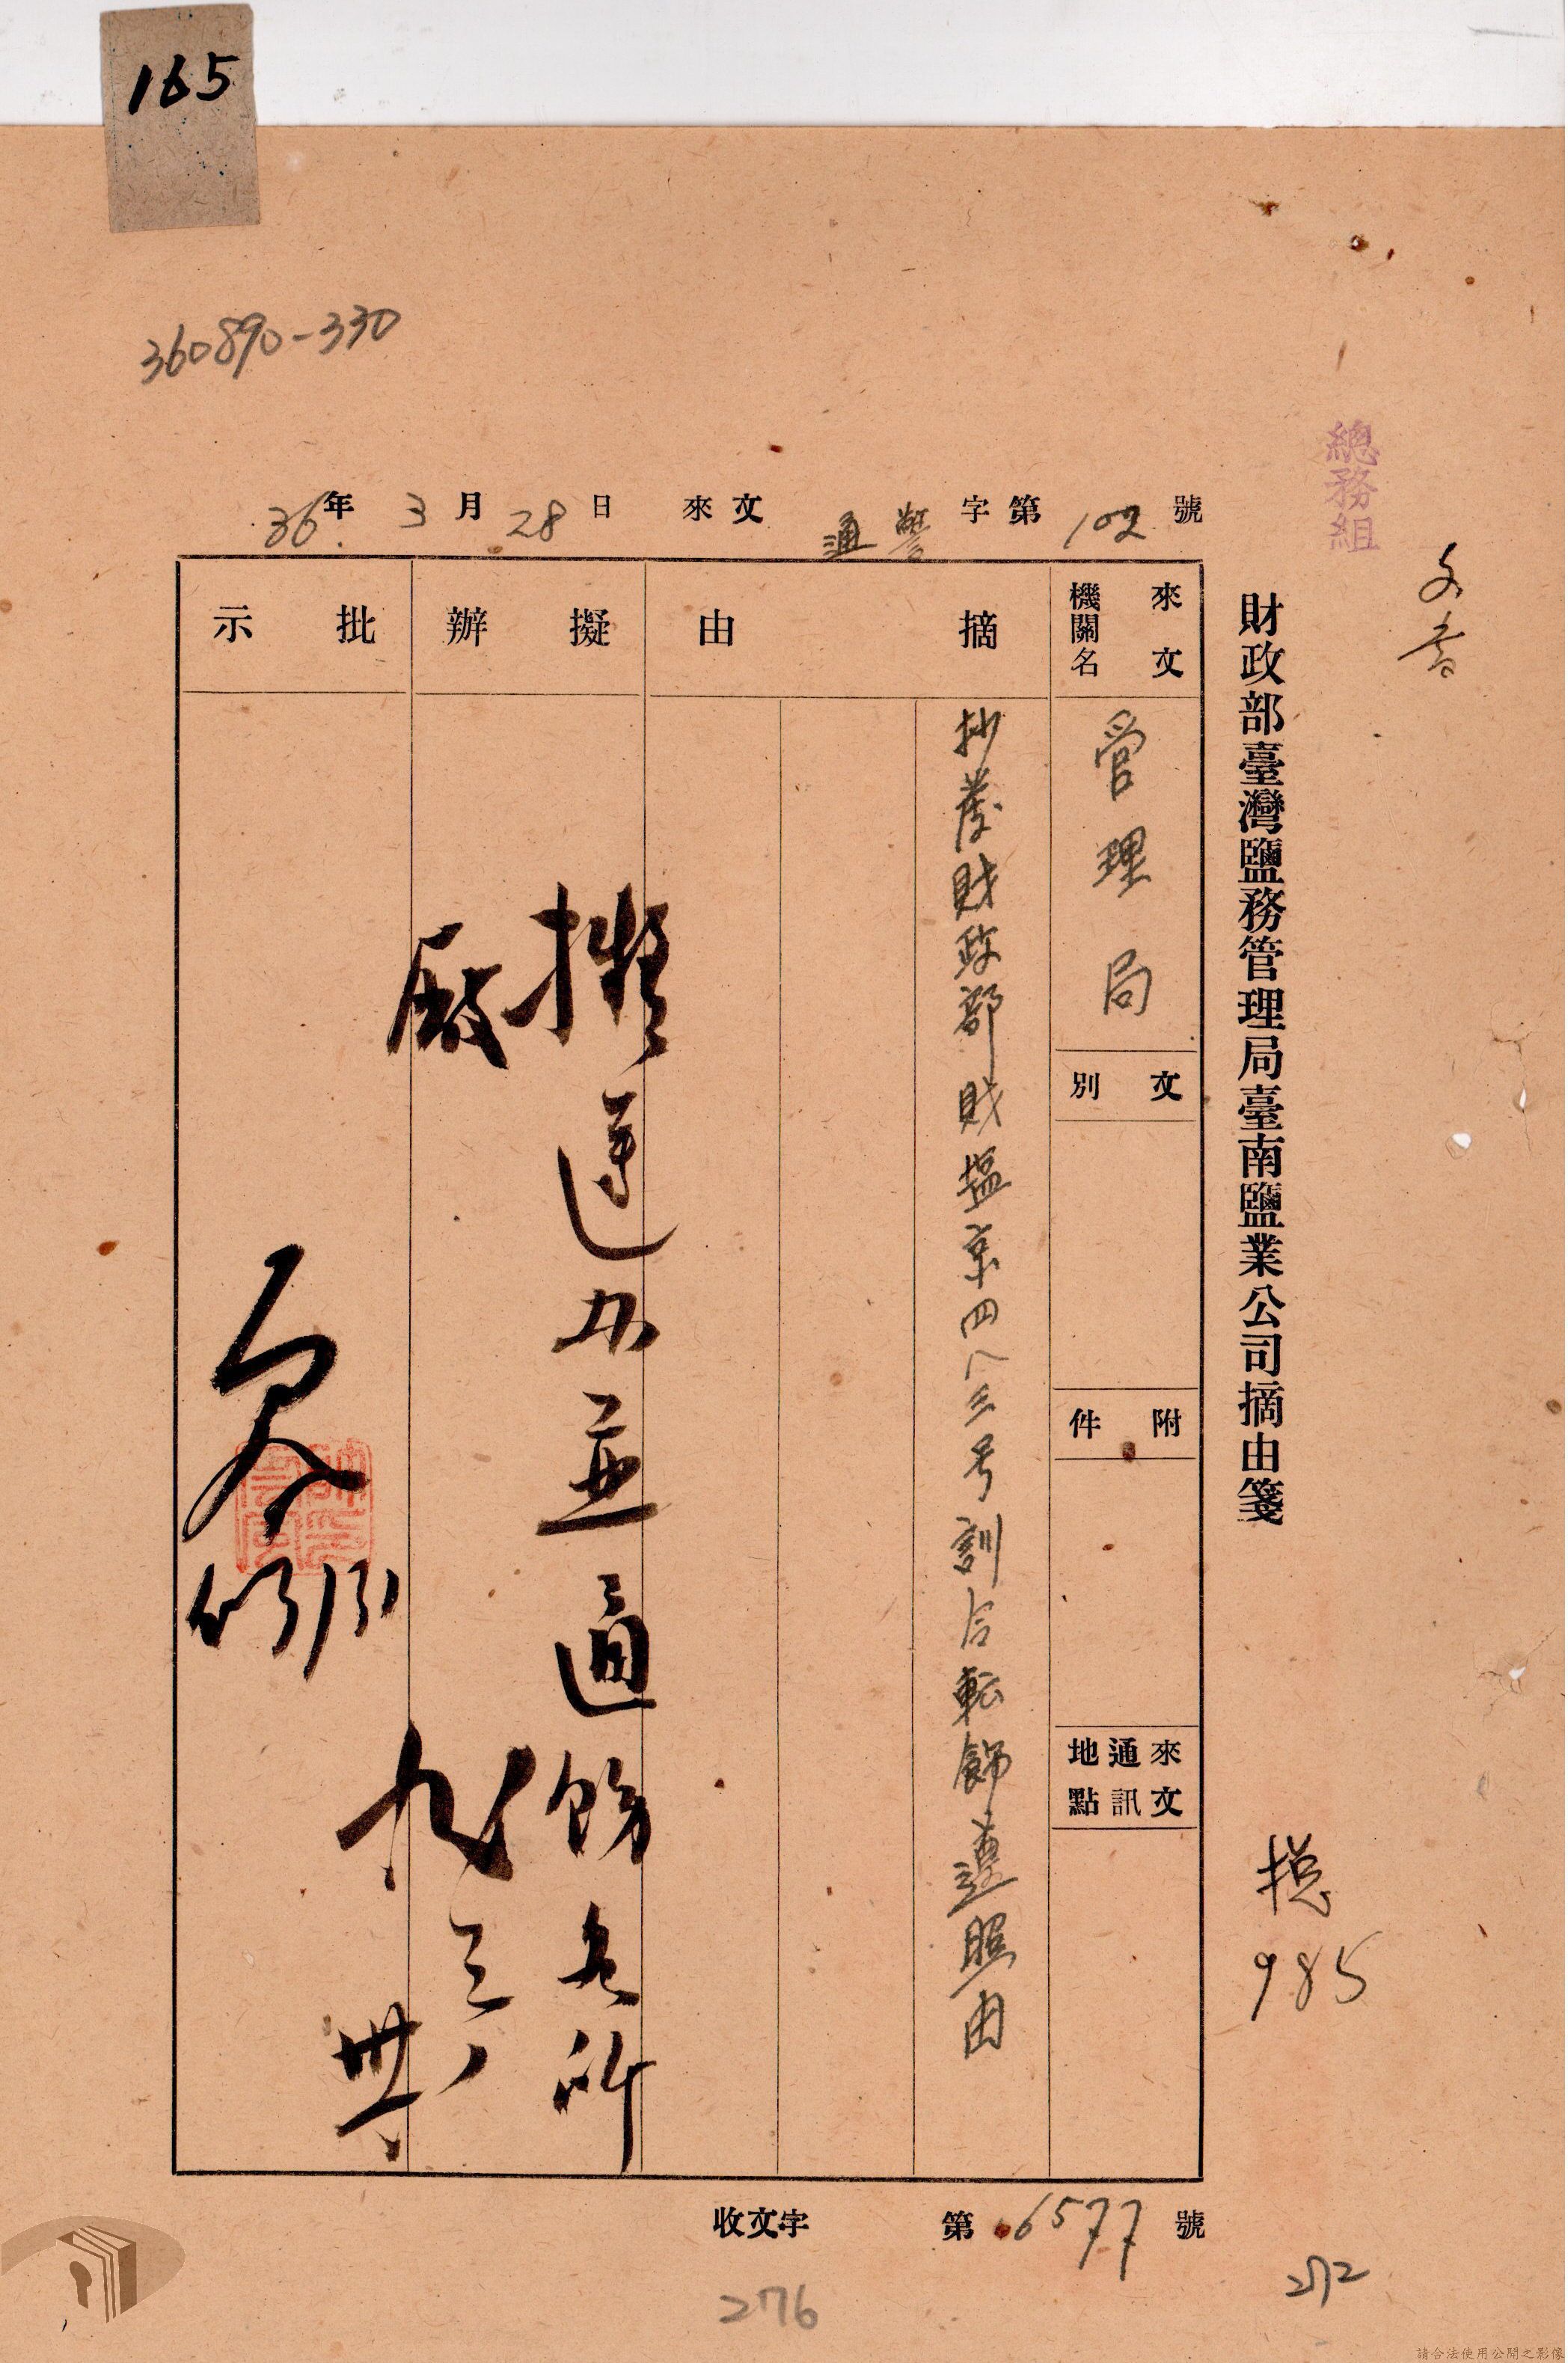 165
360890-330
總務組
財政部臺灣鹽務管理局臺南鹽業公司摘由箋
總
985
36年3月28日來文通警字第102號
來文機關名
管理局
文別
附件
來文通訊地點
摘由
抄發財政部財塩京四八三号訓令転飭遵照由
擬辦
擬遵办並通飭各所
廠
批示
收文字第6577號
276
272
請合法使用公開之影像